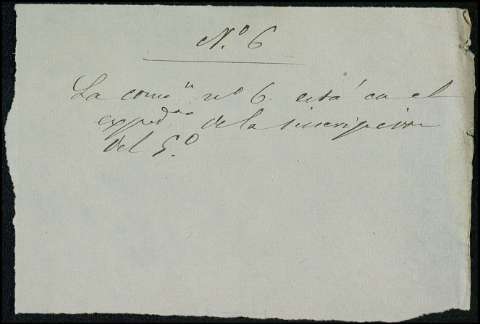 N.º 6
La comon nº 6 está en el
expedte de la suscripcion
del G.º